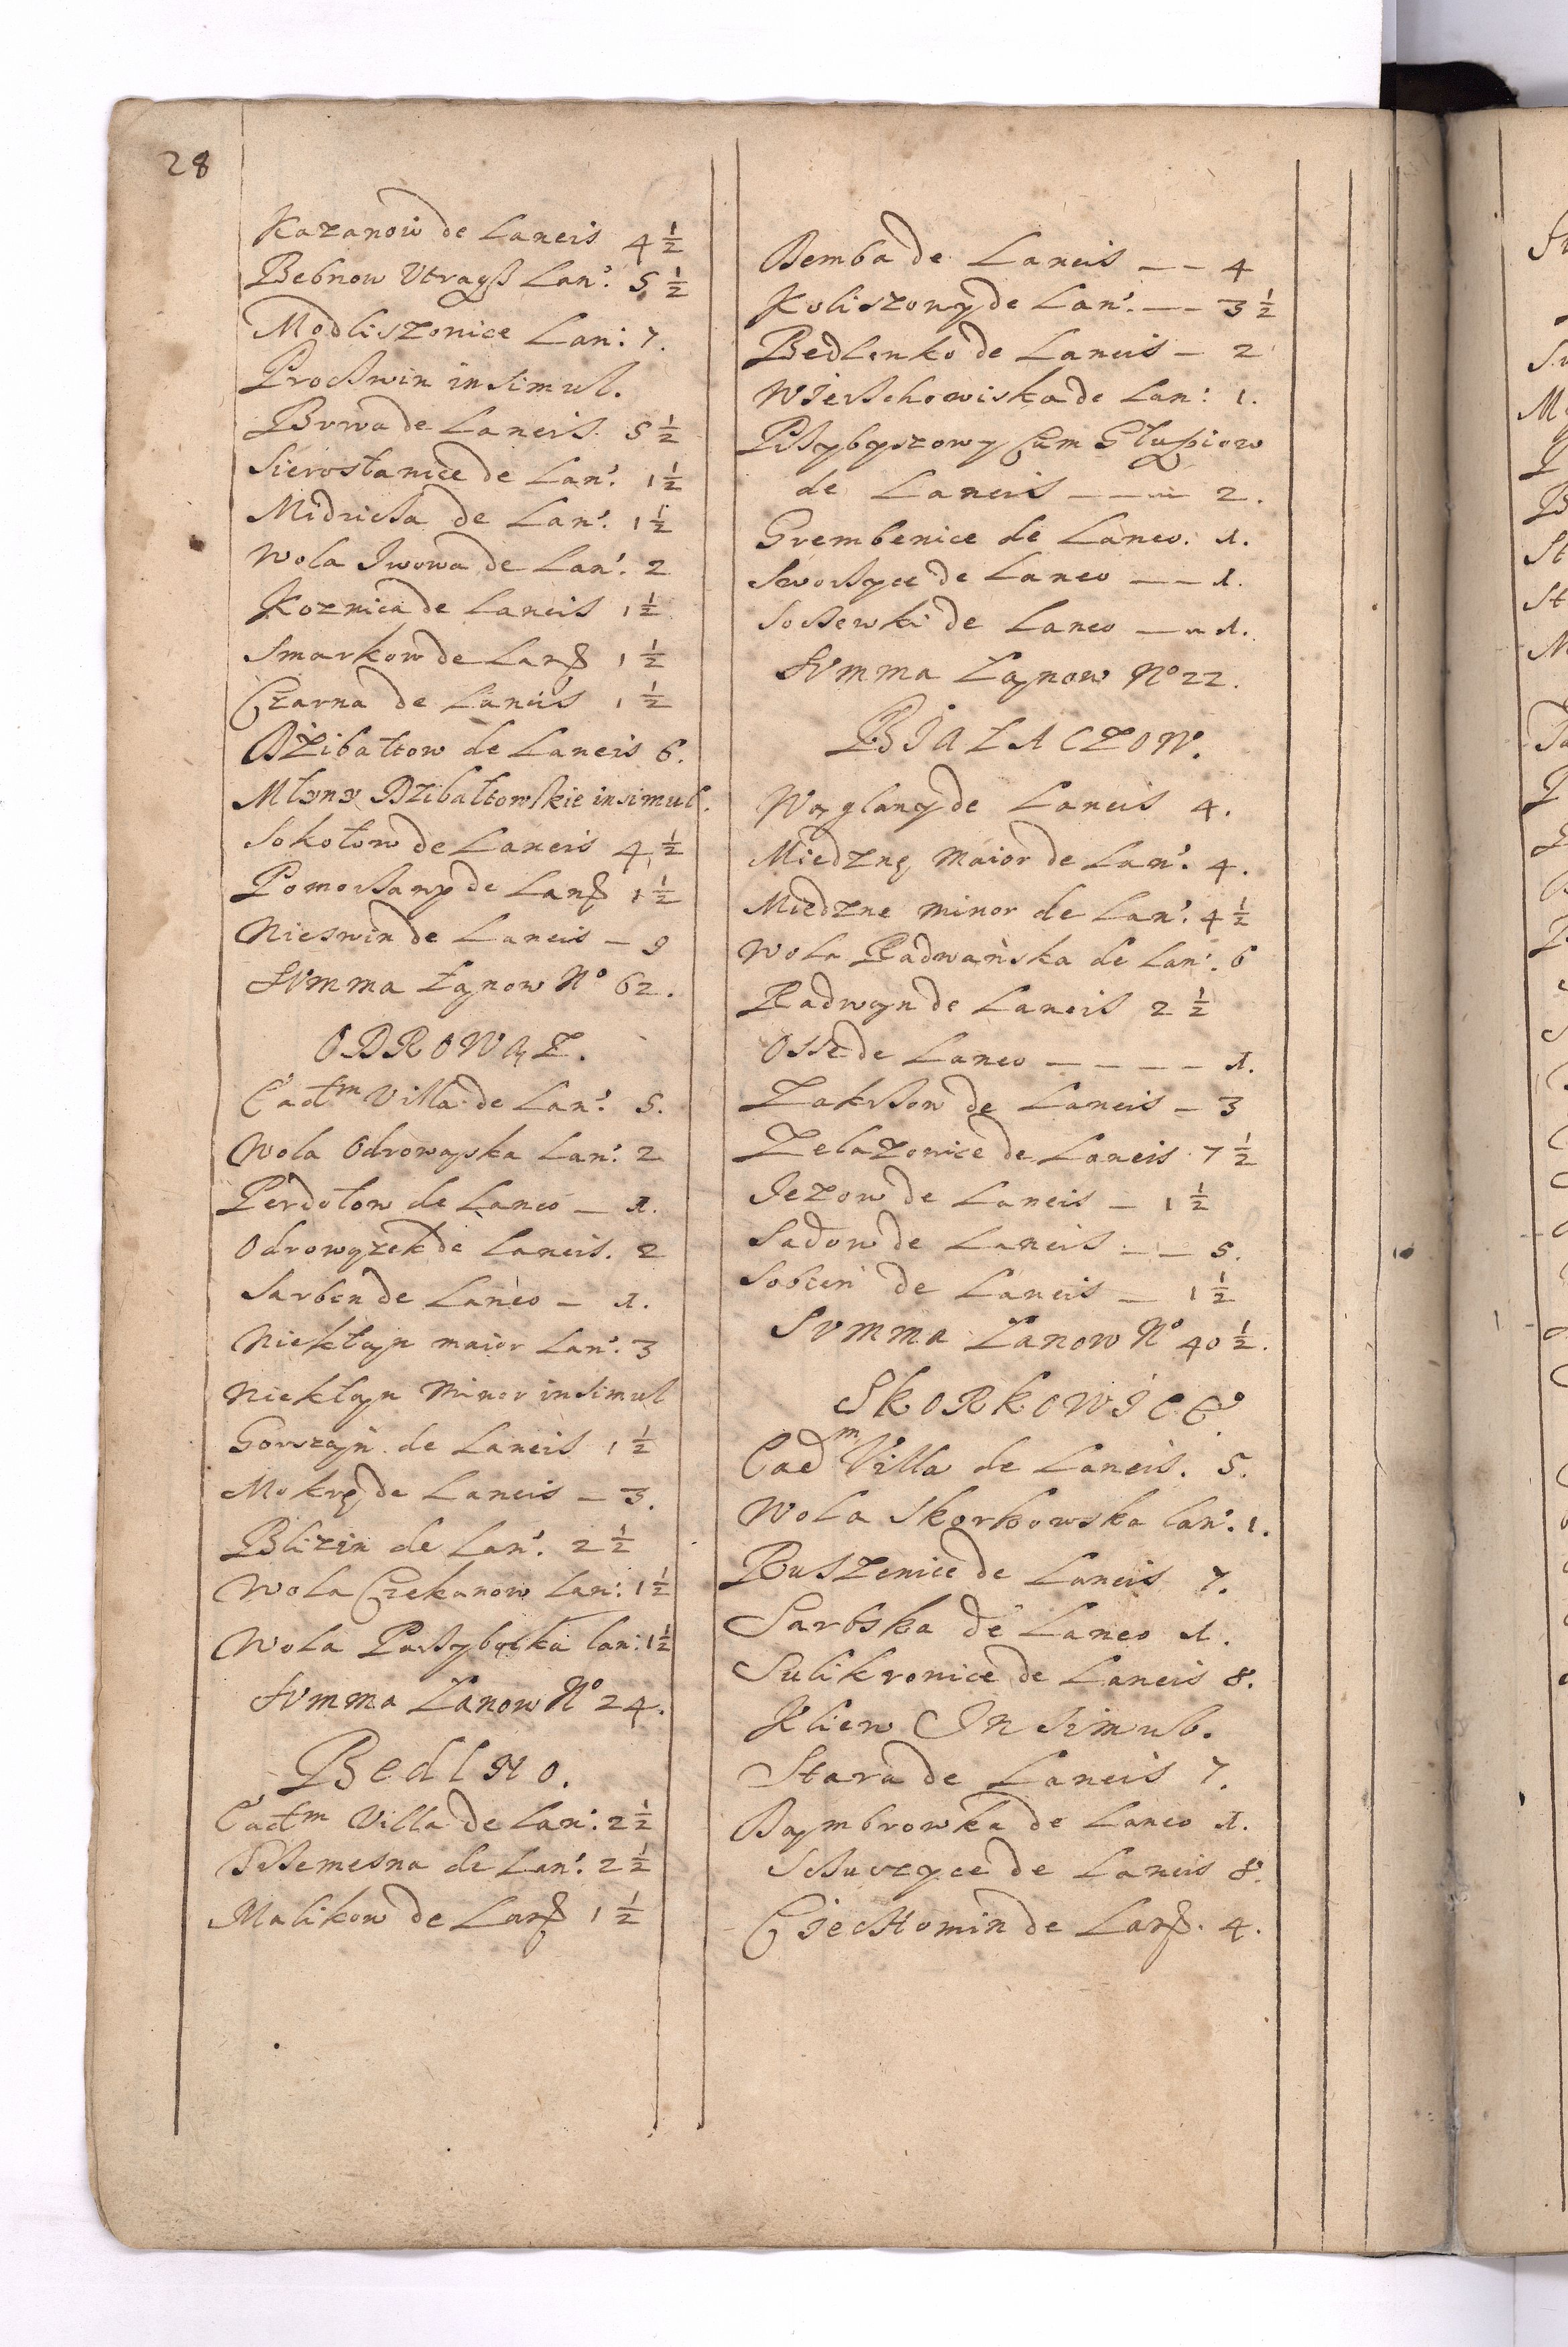 28
Kazanow de Laneis 4 1/2
Bebnow Utraqß Lan: 5 1/2
Modliszonice Lan: 7.
Proßwin insimul.
Brwa de Laneis 5 1/2
Sierosławice de Lan: 1 1/2
Midrießa de Lan: 1 1/2
Wola Jwowa de Lan: 2
Koznica de Laneis 1 1/2
Smarkow de Lanß 1 1/2
Czarna de Laneis 1 1/2
Dźibałtow de Laneis 6.
Młyny Dzibałtowskie insimul.
Sokołow de Laneis 4 1/2
Pomorßany de Lanß 1 1/2
Nieswin de Laneis – 9
Summa Łanow No 62.
ODROWĄZ.
Eadm Villa de Lan: 5.
Wola Odrowąska Lan: 2
Perdołow de Laneo – 1.
Odrowązek de Laneis. 2
Sarben de Laneo – 1.
Niekłań maior Lan: 3
Niekłań Minor insimul
Gorszaÿn de Laneis 1 1/2
Mokrę de Laneis – 3.
Blizin de Lan: 2 1/2
Wola Czekanow Lan: 1 1/2
Wola Paßybyłka lan: 1 1/2
Summa Łanow No 24.
BedlNo.
Eadm Villa de Lan: 2 1/2
Pßemesna de Lan: 2 1/2
Malikow de Lanß 1 1/2
Bemba de Laneis – – 4
Koliszowy de Lan: – – 3 1/2
Bedlenko de Laneis – 2
Wierßchowiska de Lan: 1.
Pßybyszowy Cum Głupiow
de Laneis – – – 2.
Grembenice de Laneo. 1.
Sworßyce de Laneo – – 1.
Soßewki de Laneo – – 1.
Summa Łanow No 22.
BIAŁACZOW.
Waglany de Laneis 4.
Miedznę Maior de Lan: 4.
Miedzne minor de Lan: 4 1/2
Wola Radwańska de Lan: 6
Radwan de Laneis 2 1/2
Osse de Laneo – – – – 1.
Zakßow de Laneis – 3
Zelazowice de Laneis 7 1/2
Jezow de Laneis – 1 1/2
Sadow de Laneis – – 5.
Sobień de Laneis – 1 1/2
Summa Łanow No 40 1/2.
SKORKOWICE.
Eadm Villa de Laneis. 5.
Wola Skorkowska lan: 1.
Ruszenice de Laneis 7.
Sarbska de Laneo 1.
Sulikronice de Laneis 8.
Kliew Insimul.
Stara de Laneis 7.
Dąmbrowka de Laneo 1.
Sßuczyce de Laneis 8.
Ciechomin de Lanß. 4.